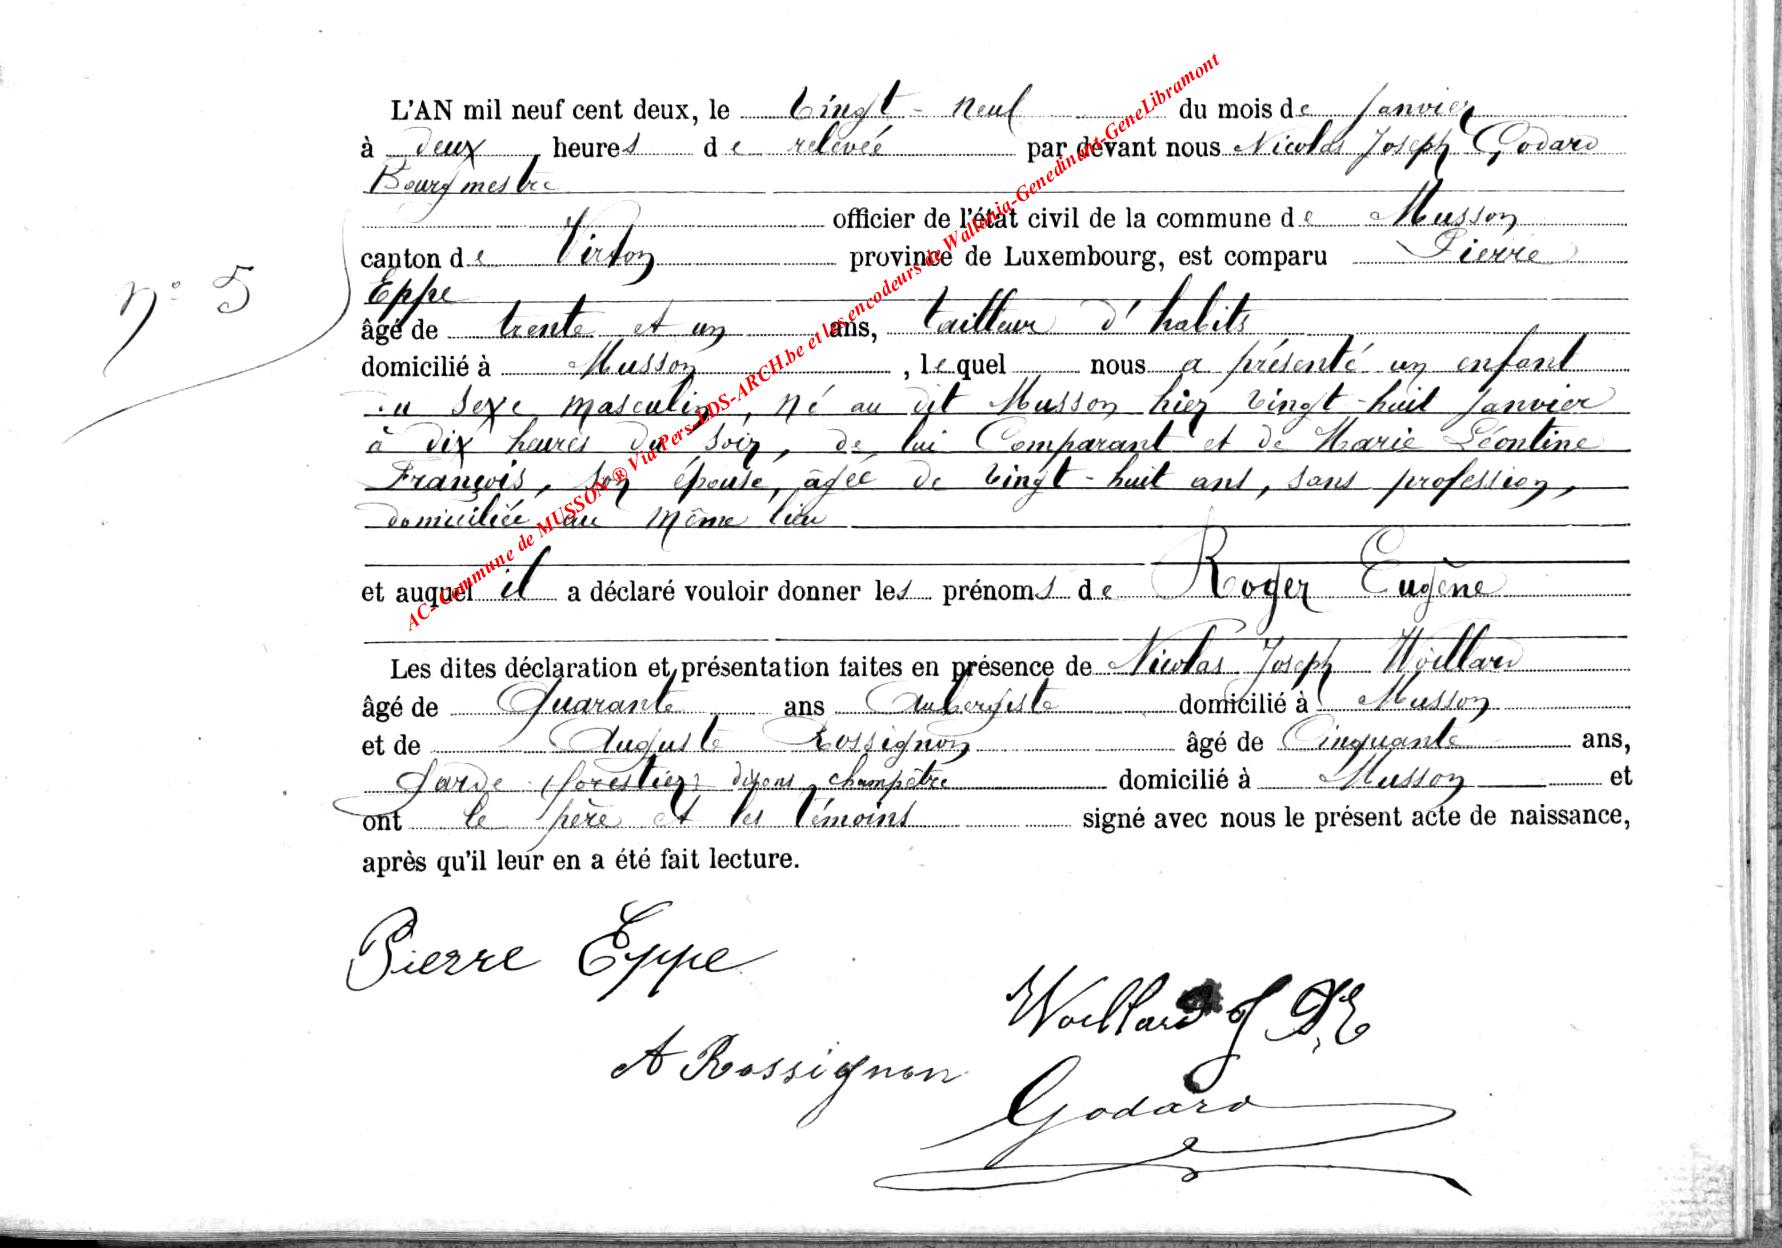 L'AN mil neuf cent deux, le vingt-neuf du mois de janvier
à deux heures de relevée par devant nous Nicolas Joseph Godard
Bourgmestre
officier de l'état civil de la commune de Musson
canton de Virton province de Luxembourg, est comparu Pierre
n° 5
Eppe
âgé de trente et un ans, tailleur d'habits
domicilié à Musson, lequel nous a présenté un enfant
du sexe masculin, né au dit Musson hier vingt-huit janvier
à dix heures du soir, de lui Comparant et de Marie Léontine
François, son épouse, âgée de vingt-huit ans, sans profession,
domiciliée au même lieu
et auquel il a déclaré vouloir donner les prénoms de Roger Eugène
Les dites déclaration et présentation faites en présence de Nicolas Joseph Woillard
âgé de Quarante ans Aubergiste domicilié à Musson
et de Auguste Rossignon âgé de Cinquante ans,
Garde (forestier) disons champêtre domicilié à Musson et
ont le père et les témoins signé avec nous le présent acte de naissance,
après qu'il leur en a été fait lecture.
Pierre Eppe
Woillard J
A Rossignon
Godard
AC-Commune de MUSSON ® Via Pers-LDS-ARCH.be et les encodeurs de Wallonia-Genedinant-GeneLibramont